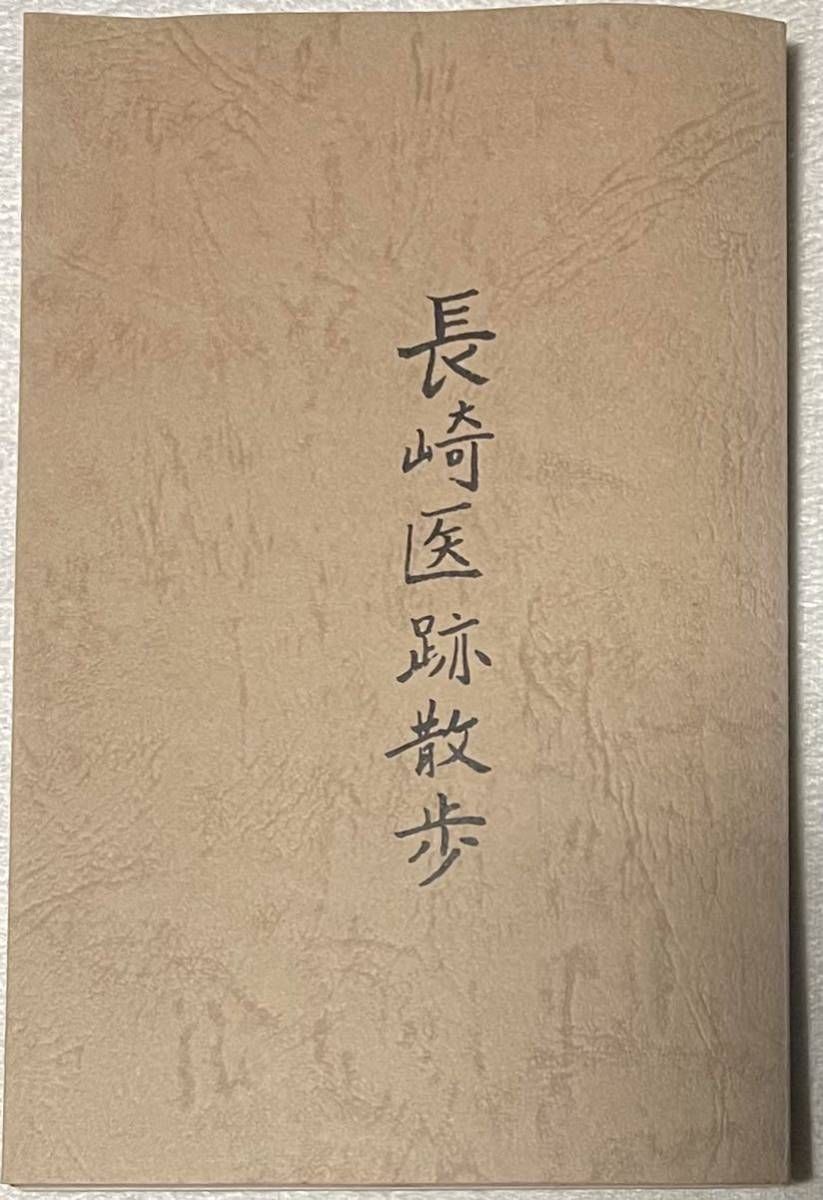 長崎医跡散歩